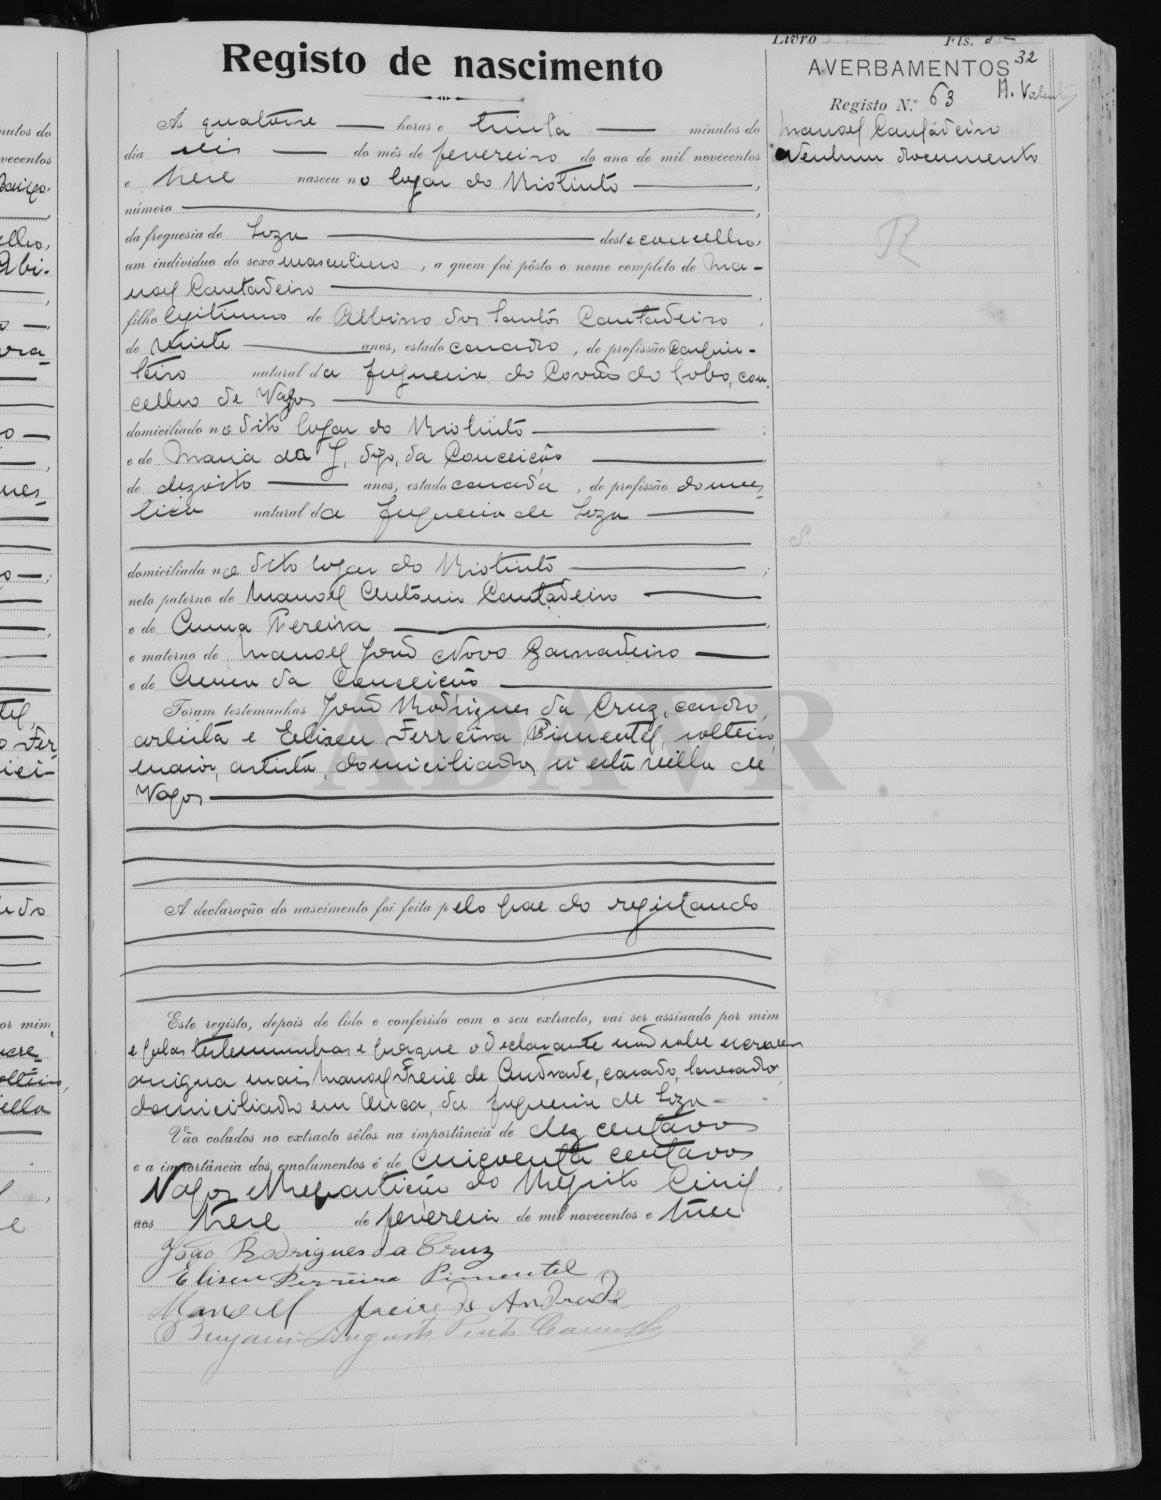 Livro Fls.
32
Registo de nascimento
AVERBAMENTOS
Registo N.º 63
Manoel Cantadeiro
Nenhum documento
Ás quatorse horas e trinta minutos do
dia seis do mês de fevereiro do ano de mil novecentos
e trese nasceu no logar do Riotinto,
número
da freguesia de Soza deste concelho,
um individuo do sexo masculino, a quem foi pôsto o nome completo de Ma-
noel Cantadeiro
filho legitimo de Albino dos Santos Cantadeiro,
de vinte anos, estado casado, de profissão carpin-
teiro natural da freguesia de Covão do Lobo, con-
celho de Vagos
domiciliado no dito logar do Riotinto;
e de Maria da J, digo, da Conceição
de dezoito anos, estado casada, de profissão domes-
tica natural da freguesia de Soza
domiciliada no dito logar do Riotinto;
neto paterno de Manoel Antonio Cantadeiro
e de Anna Pereira,
e materno de Manoel João Novo
e de Anna da Conceição
Foram testemunhas João Rodrigues da Cruz, casado,
artista e Eliseu Ferreira Pimentel, solteiro,
maior, artista, domiciliados n'esta villa de
Vagos
A declaração do nascimento foi feita pelo pae do registando
Este registo, depois de lido e conferido com o seu extracto, vai ser assinado por mim
e pelas testemunhas e porque o declarante não sabe escrever
assigna mais Manoel Freire de Andrade, casado, lavrador,
domiciliado em Ouca, da freguesia de Soza
Vão colados no extracto sêlos na importância de dez centavos
e a importância dos emolumentos é de cincoenta centavos
Vagos e Repartição do Registo Civil,
aos trese de fevereiro de mil novecentos e trese
João Rodrigues da Cruz
Eliseu Ferreira Pimentel
Manoel Freire de Andrade
Augusto
ADAVR